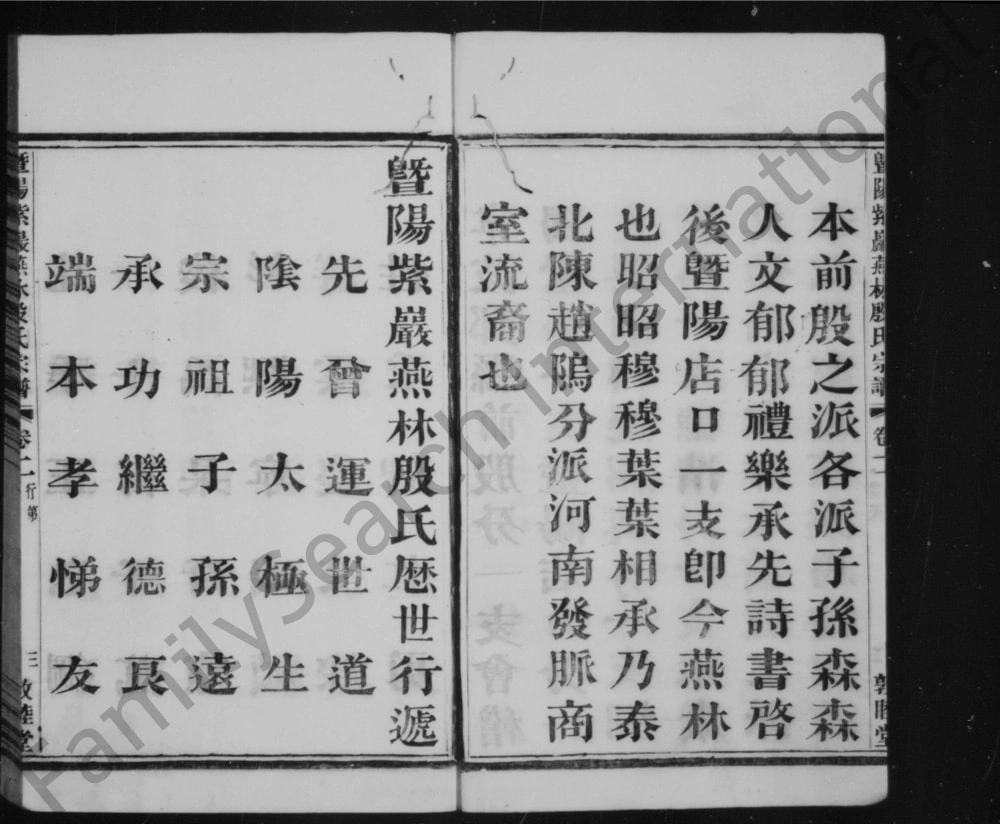 暨陽紫巖燕林殷氏宗譜 卷二 敦睦堂
本前殷之派各派子孫森森
人文郁郁禮樂承先詩書啓
後暨陽店口一支卽今燕林
也昭昭穆穆葉葉相承乃泰
北陳趙隖分派河南發脈商
室流裔也
暨陽紫巖燕林殷氏歷世行遞
先會運世道
陰陽太極生
宗祖子孫遠
承功繼德良
端本孝悌友
暨陽紫巖燕林殷氏宗譜 卷二 行第 三 敦睦堂
FamilySearch International